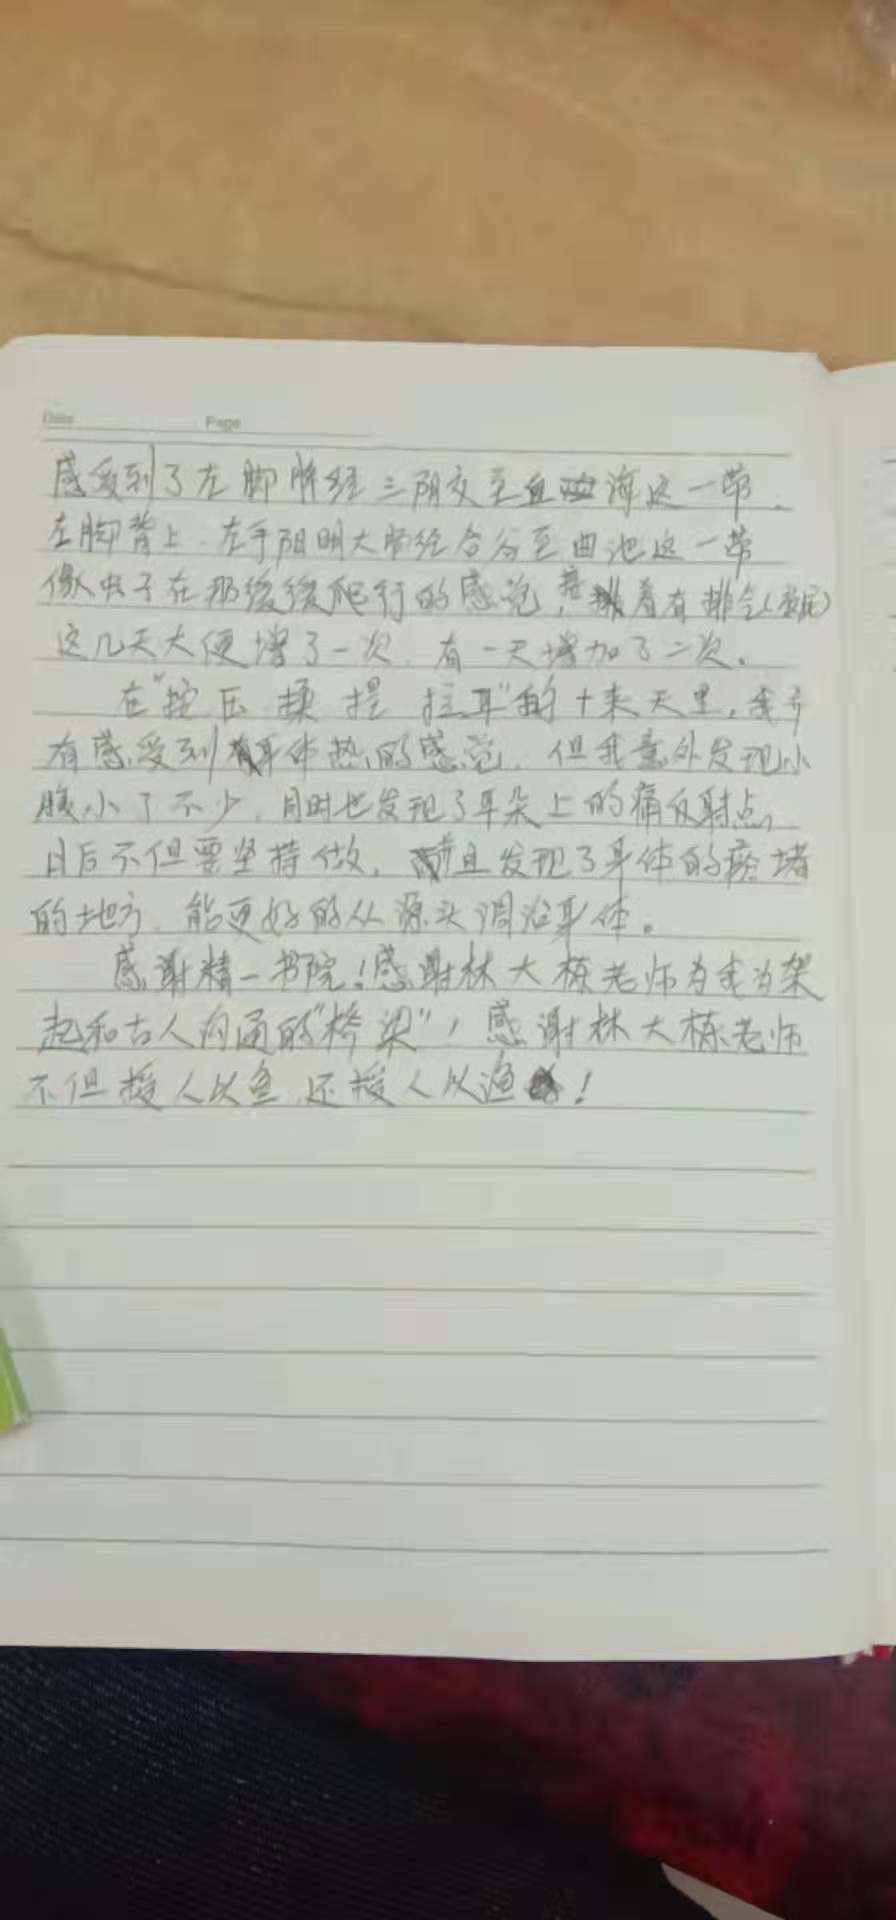 Date Page
感受到了左脚脾经三阴交至血海这一带.
左脚背上.左手阳明大肠经合谷至曲池这一带
像虫子在那缓缓爬行的感觉,接着有排气(放屁)
这几天大便增了一次.有一天增加了二次。
在"按压.揉 提 拉耳"的十来天里,
有感受到身体热的感觉,但我意外发现小
腹小了不少.同时也发现了耳朵上的痛反射点,
日后不但要坚持做,并且发现了身体的瘀堵
的地方.能更好的从源头调治身体。
感谢精一书院!感谢林大栋老师为我
架起和古人沟通的"桥梁"!感谢林大栋老师
不但授人以鱼.还授人以渔!